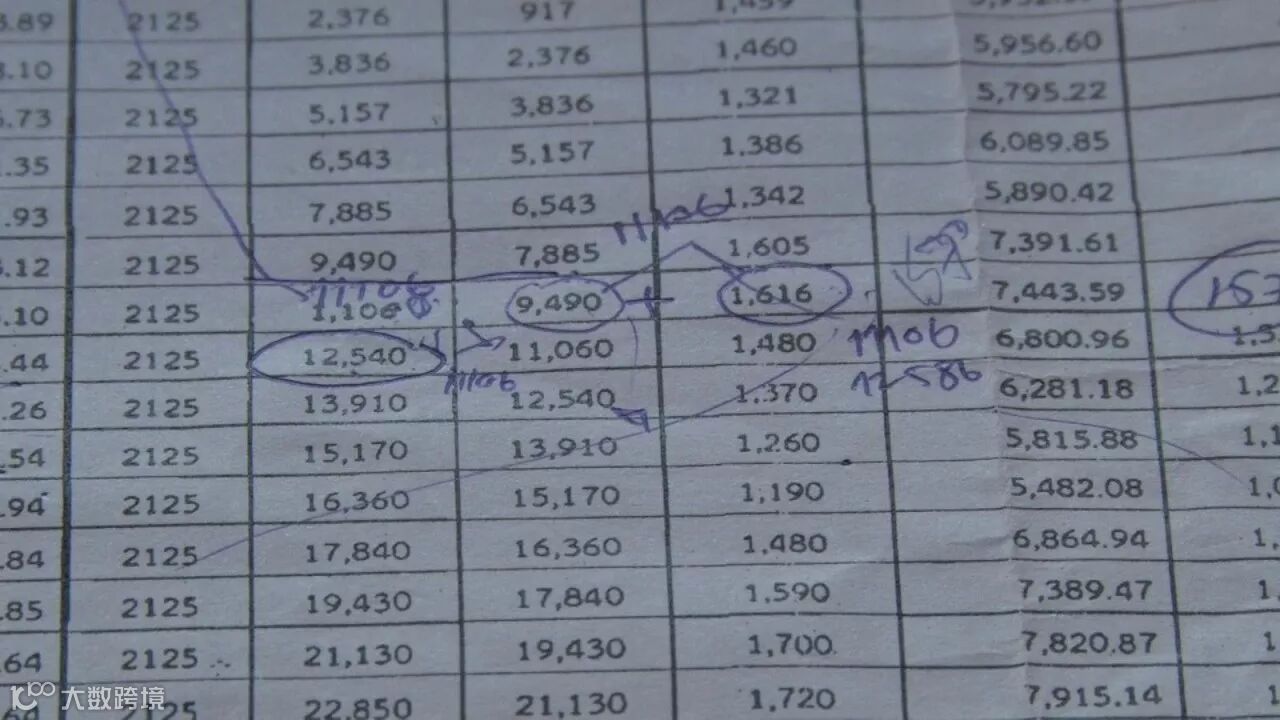 3.89 2125 2,376 917 1,459
3.10 2125 3,836 2,376 1,460 5,956.60
.73 2125 5,157 3,836 1,321 5,795.22
.35 2125 6,543 5,157 1.386 6,089.85
.93 2125 7,885 6,543 1,342 5,890.42
11106
.12 2125 9,490 7,885 1,605 7,391.61
11106
.10 2125 1,106 9,490 + 1,616 7,443.59 153
.44 2125 12,540 11,060 1,480 11106 6,800.96
11106
.26 2125 13,910 12,540 1.370 12586 6,281.18 1,2
.54 2125 15,170 13,910 1,260 5,815.88 1,1
.94 2125 16,360 15,170 1,190 5,482.08 1,0
.84 2125 17,840 16,360 1,480 6,864.94 1,
.85 2125 19,430 17,840 1.590 7,389.47 1,
.64 2125 21,130 19,430 1,700 7,820.87 1
2125 22,850 21,130 1,720 7,915.14 1
大数跨境